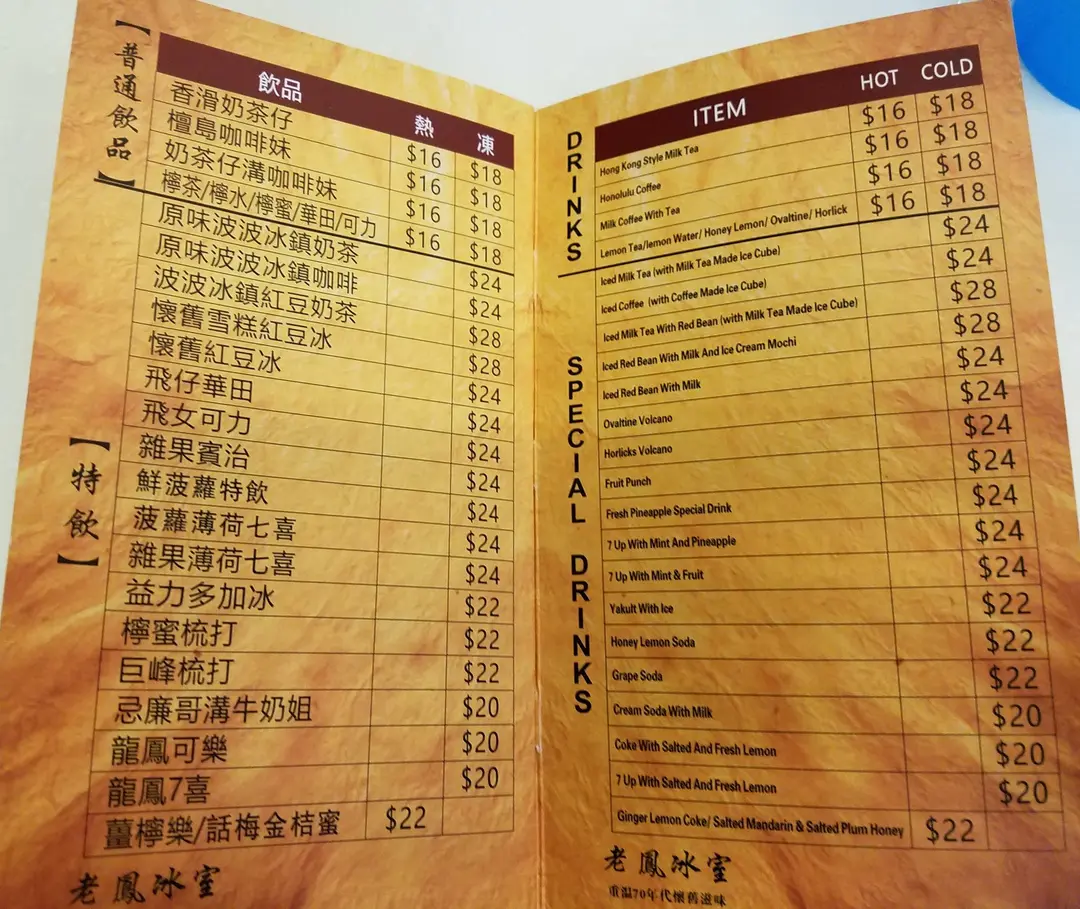 【普通飲品】
飲品 熱 凍
香滑奶茶仔 $16 $18
檀島咖啡妹 $16 $18
奶茶仔溝咖啡妹 $16 $18
檸茶/檸水/檸蜜/華田/可力 $16 $18
【特飲】
原味波波冰鎮奶茶 $24
原味波波冰鎮咖啡 $24
波波冰鎮紅豆奶茶 $28
懷舊雪糕紅豆冰 $28
懷舊紅豆冰 $24
飛仔華田 $24
飛女可力 $24
雜果賓治 $24
鮮菠蘿特飲 $24
菠蘿薄荷七喜 $24
雜果薄荷七喜 $24
益力多加冰 $22
檸蜜梳打 $22
巨峰梳打 $22
忌廉哥溝牛奶姐 $20
龍鳳可樂 $20
龍鳳7喜 $20
薑檸樂/話梅金桔蜜 $22
老鳳冰室
DRINKS
ITEM HOT COLD
Hong Kong Style Milk Tea $16 $18
Honolulu Coffee $16 $18
Milk Coffee With Tea $16 $18
Lemon Tea/lemon Water/ Honey Lemon/ Ovaltine/ Horlick $16 $18
SPECIAL DRINKS
Iced Milk Tea (with Milk Tea Made Ice Cube) $24
Iced Coffee (with Coffee Made Ice Cube) $24
Iced Milk Tea With Red Bean (with Milk Tea Made Ice Cube) $28
Iced Red Bean With Milk And Ice Cream Mochi $28
Iced Red Bean With Milk $24
Ovaltine Volcano $24
Horlicks Volcano $24
Fruit Punch $24
Fresh Pineapple Special Drink $24
7 Up With Mint And Pineapple $24
7 Up With Mint & Fruit $24
Yakult With Ice $22
Honey Lemon Soda $22
Grape Soda $22
Cream Soda With Milk $20
Coke With Salted And Fresh Lemon $20
7 Up With Salted And Fresh Lemon $20
Ginger Lemon Coke/ Salted Mandarin & Salted Plum Honey $22
老鳳冰室
重溫70年代懷舊滋味